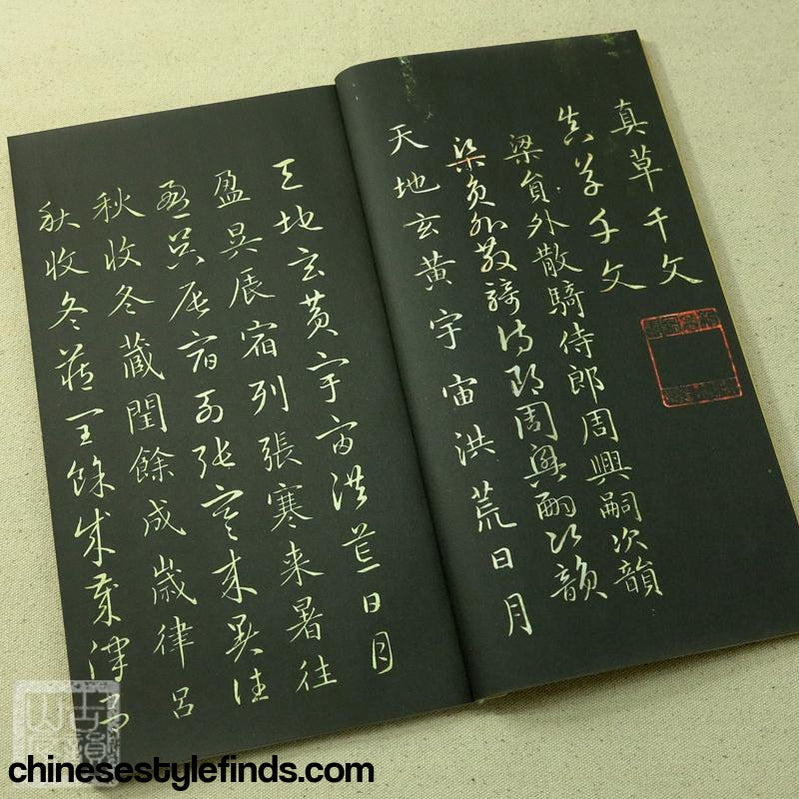 真草千文
真草千文
梁員外散騎侍郎周興嗣次韻
梁員外散騎侍郎周興嗣次韻
天地玄黃宇宙洪荒日月
天地玄黃宇宙洪荒日月
盈昃辰宿列張寒来暑往
盈昃辰宿列張寒来暑往
秋收冬藏閏餘成歲律呂
秋收冬藏閏餘成歲律呂
chinesestylefinds.com